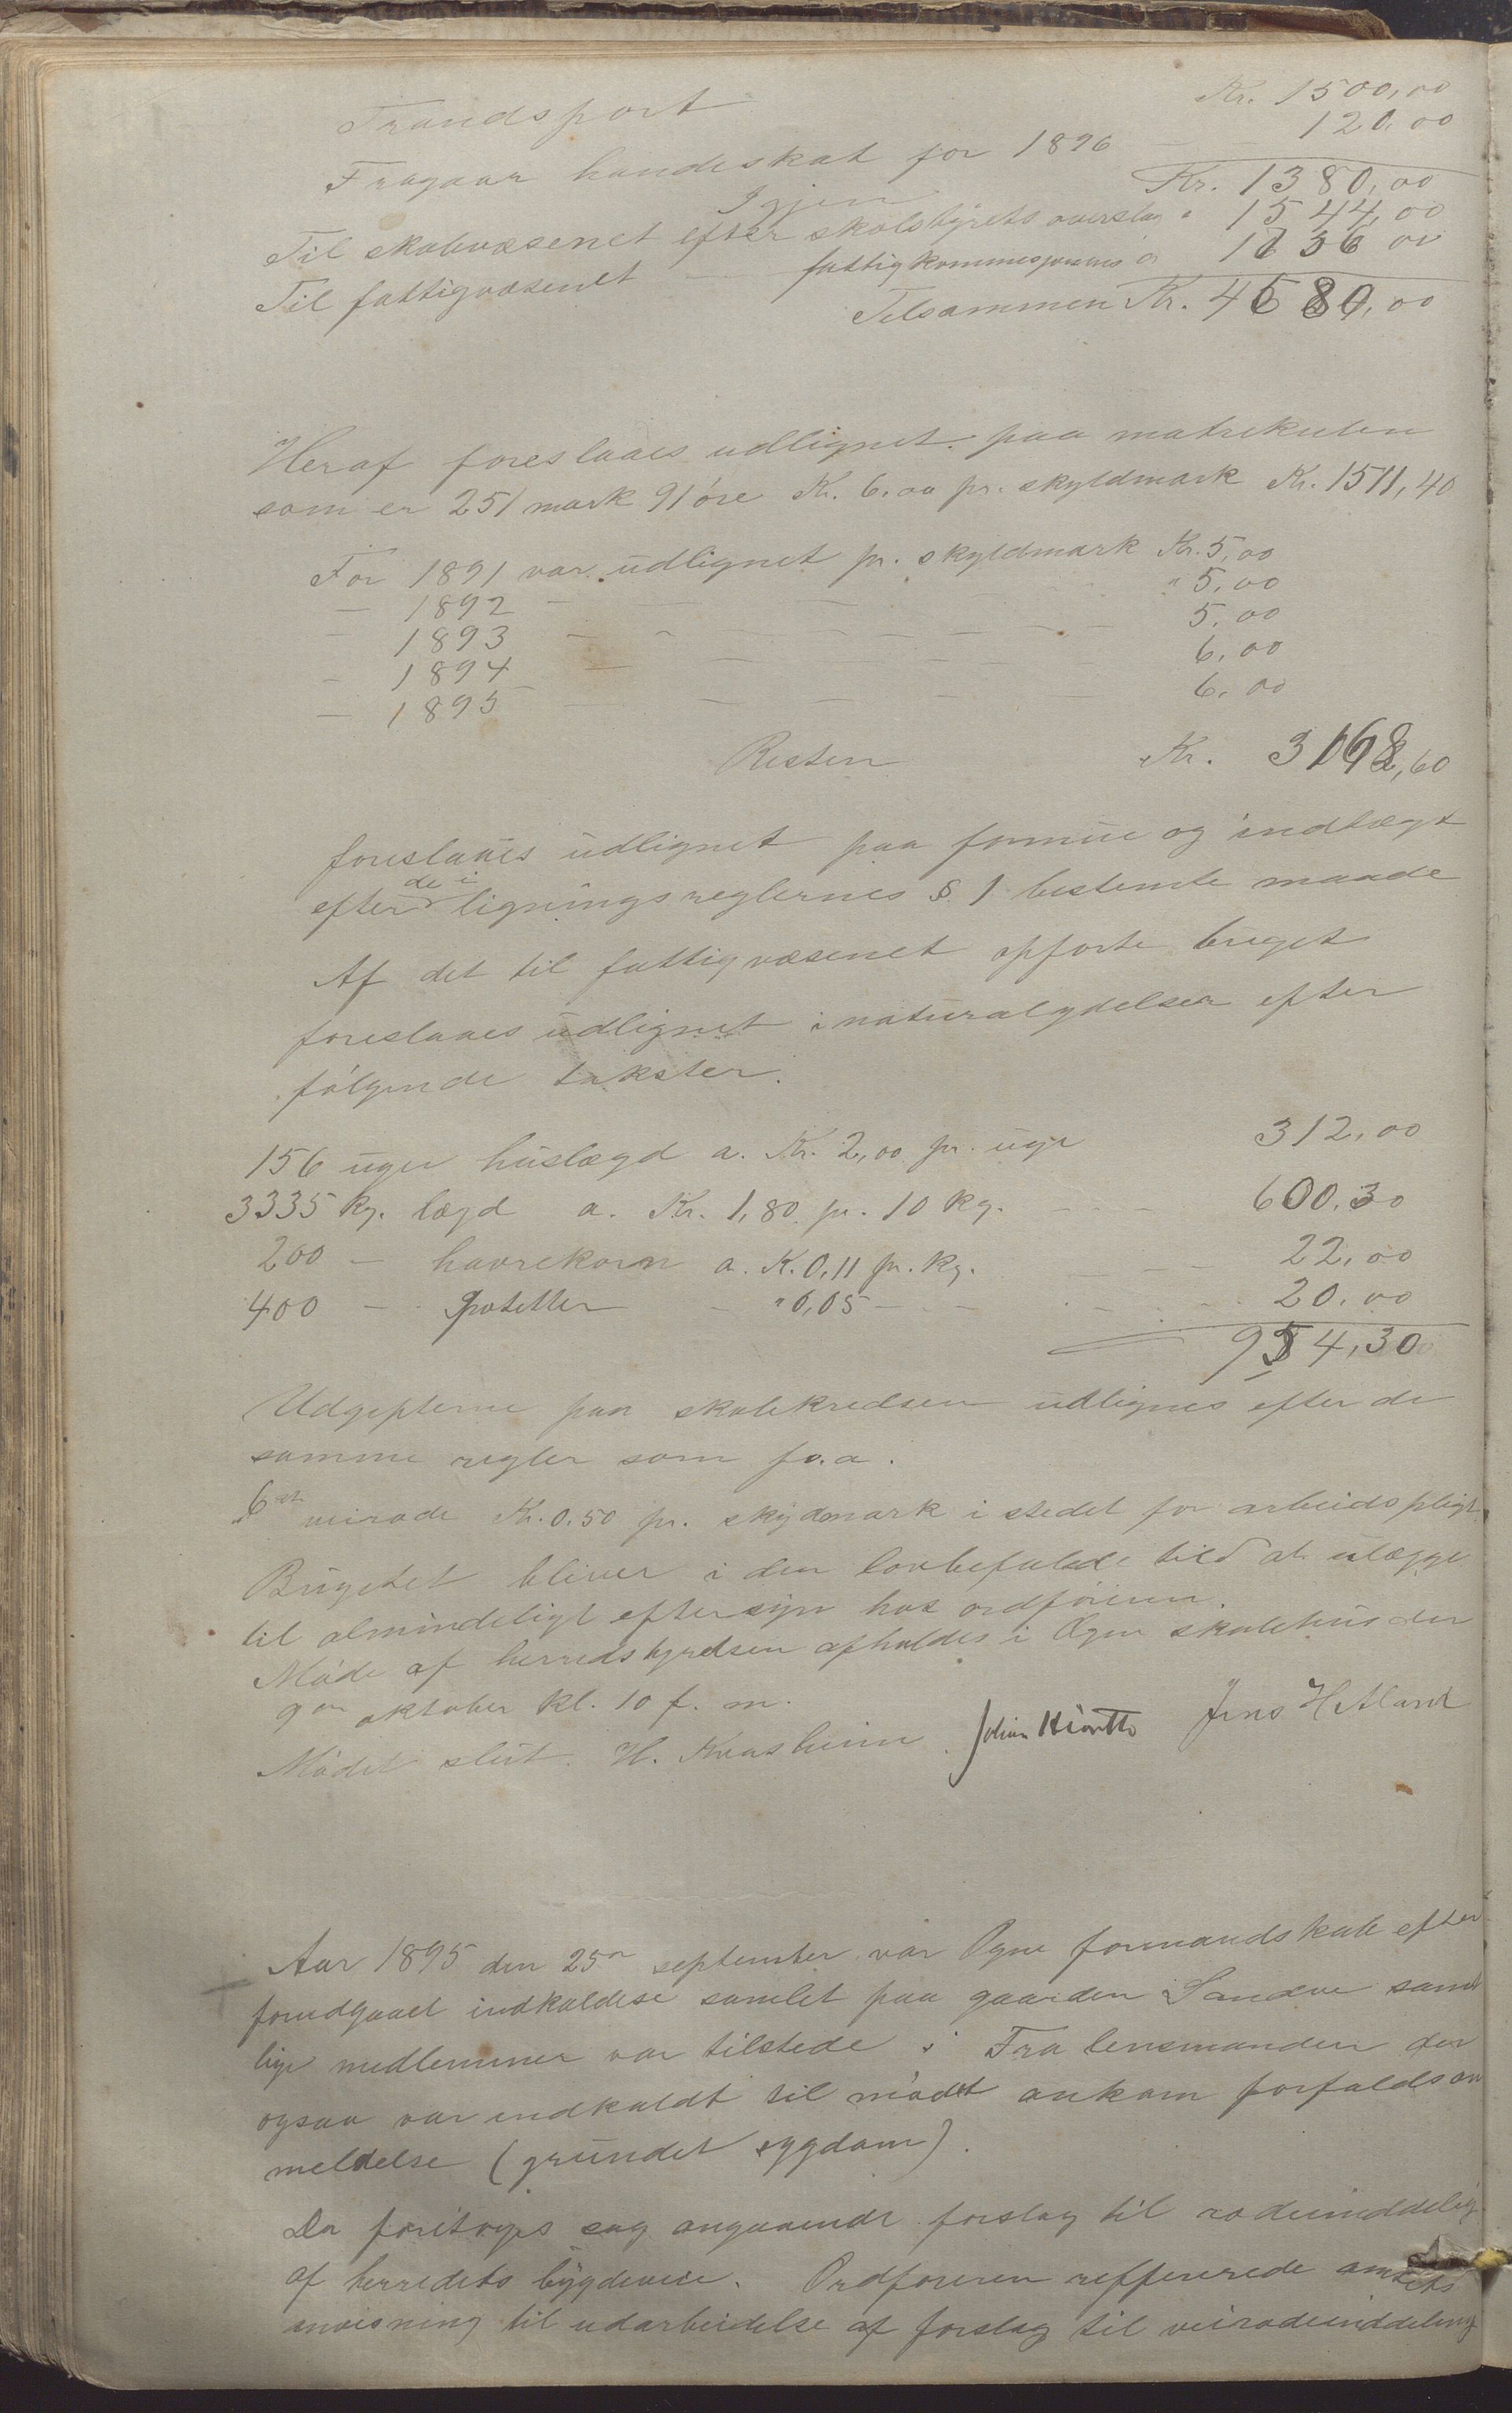 Trandsport Kr. 1500,00
Fragaar hundeskat for 1896 120,00
Igjen Kr. 1380,00
Til skolevæsenet efter skolstyrets overslag " 1544,00
Til fattigvæsenet — fattigkommisjonens " 1756 00
Tilsammen Kr. 4680,00
Heraf foreslaaes udlignet paa matrikulen
som er 251 mark 91 øre Kr. 6,00 pr. skyldmark Kr. 1511,40
For 1891 var udlignet pr. skyldmark Kr. 5,00
— 1892 — — — — " 5,00
— 1893 — — — — 5,00
— 1894 — — — — 6,00
— 1895 — — — — 6,00
Resten Kr. 3168,60
foreslaaes udlignet paa formue og indtægt
efter de i ligningsreglernes § 1 bestemte maade
Af det til fattigvæsenet opførte buget
foreslaaes udlignet i naturalydelser efter
følgende takster.
156 uger huslægd a. Kr. 2,00 pr. uge 312,00
3335 kg. lægd a. Kr. 1,80 pr. 10 kg. — — — 600,30
200 — havrekorn a. K. 0,11 pr. kg. — — — 22,00
400 — potetter — " 0,05 — — — — 20,00
954,30
Udgifterne paa skolekredsen udlignes efter de
samme regler som f.a.
6te veirode Kr. 0.50 pr. skydmark i stedet for arbeidspligt.
Bugetet bliver i den lovbefalede tid at ulægge
til almindeligt eftersyn hos ordføreren.
Møde af herredstyrelsen afholdes i Ogne skolehus den
9de oktober kl. 10 f. m.
Mødet slut. H. Kvasheim Jens Hetland
Aar 1895 den 25de september var Ogne formandskab efter
forudgaaet indkaldese samlet paa gaarden Sandve samt
lige medlemmer var tilstede i Fra lensmanden der
ogsaa var indkaldt til mødet ankom forfaldsan
meldelse (grundet sygdom).
Da foretoges sag angaaende forslag til rodeinddeling
af herredets bygdeveie. Ordføreren reffererede amtets
anvisning til udarbeidelse af forslag til veirodeinddeling